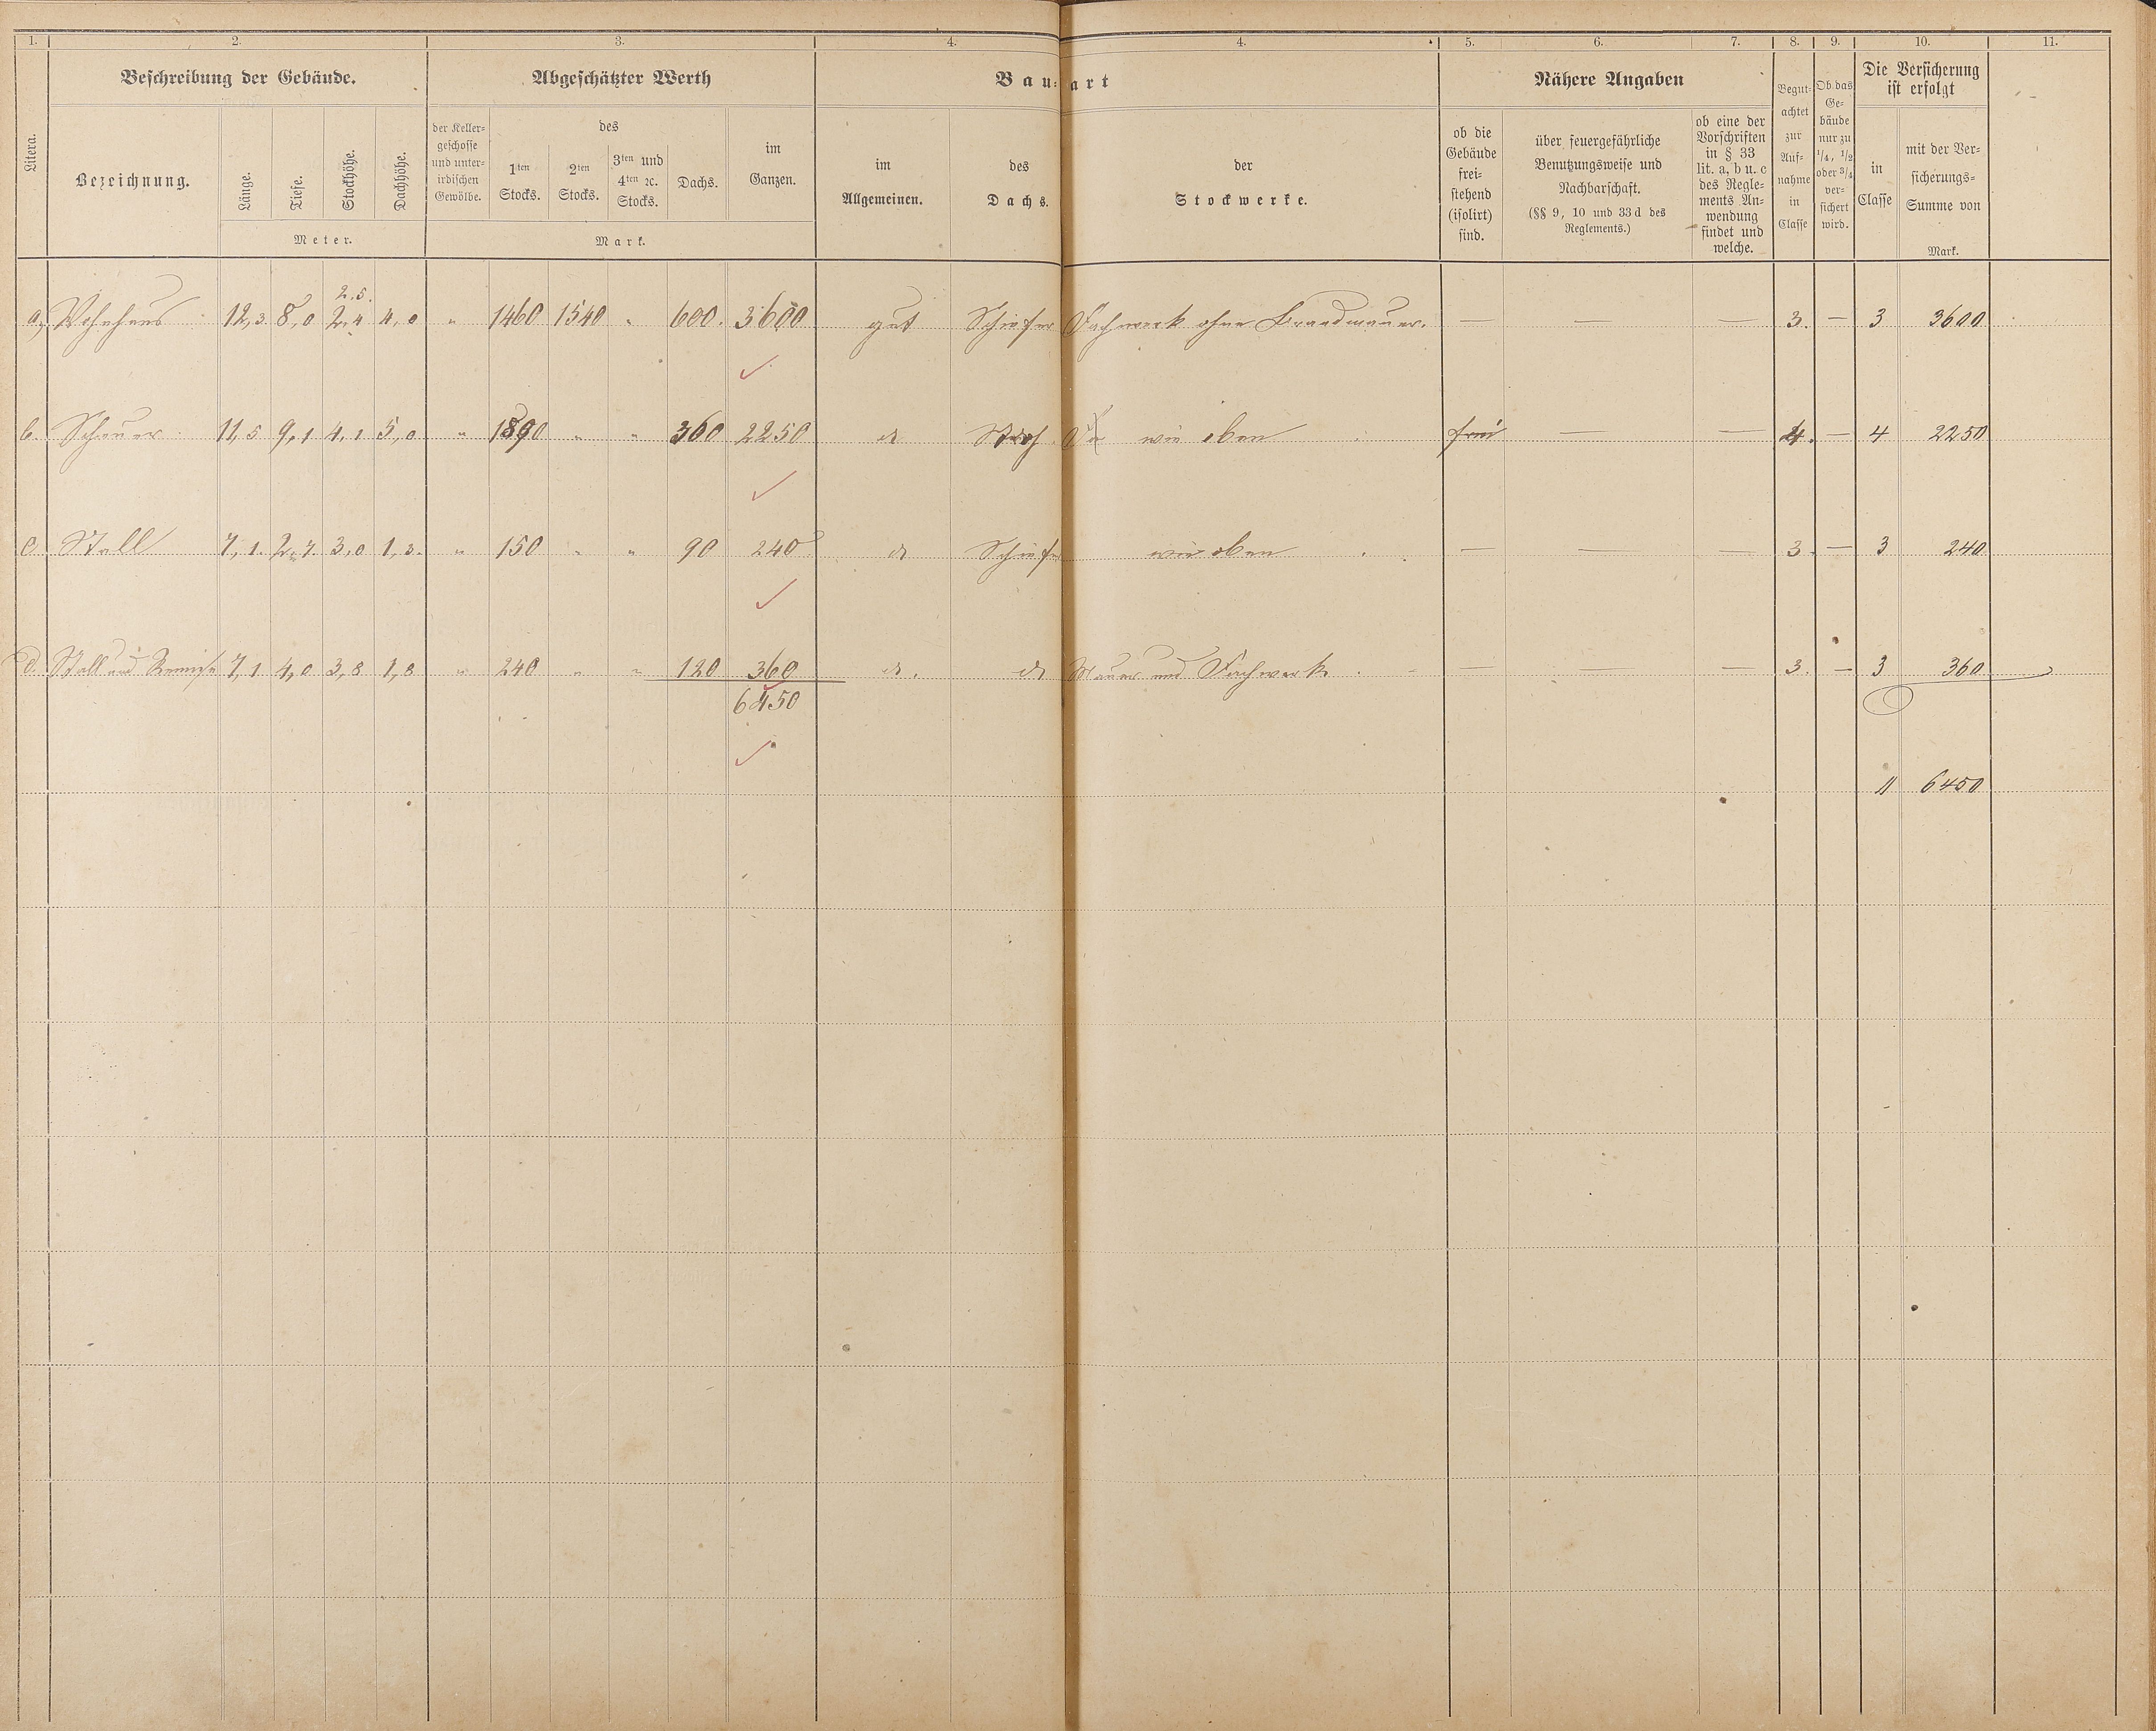 1. 2. 3. 4. 4. 5. 6. 7. 8. 9. 10. 11.
Litera.
Beschreibung der Gebäude.
Bezeichnung.
Länge.
Tiefe.
Stockhöhe.
Dachhöhe.
Meter.
Abgeschätzter Werth
der Keller-
geschosse
und unter-
irdischen
Gewölbe.
des
1ten
Stocks.
2ten
Stocks.
3ten und
4ten ꝛc.
Stocks.
Dachs.
im
Ganzen.
Mark.
Bau-art
im
Allgemeinen.
des
Dachs.
der
Stockwerke.
Nähere Angaben
ob die
Gebäude
frei-
stehend
(isolirt)
sind.
über feuergefährliche
Benutzungsweise und
Nachbarschaft.
(§§ 9, 10 und 33d des
Reglements.)
ob eine der
Vorschriften
in § 33
lit. a, b u. c
des Regle-
ments An-
wendung
findet und
welche.
Begut-
achtet
zur
Auf-
nahme
in
Classe
Ob das
Ge-
bäude
nur zu
1/4, 1/2
oder 3/4
ver-
sichert
wird.
Die Versicherung
ist erfolgt
in
Classe
mit der Ver-
sicherungs-
Summe von
Mark.
2,5.
a, Wohnhaus 12,3. 8,0 2,4 4,0 " 1460 1540 " 600. 3600 gut Schiefer Fachwerk ohne Brandmauer. — — — 3. — 3 3600
b. Scheuer 11,5 9,1 4,1 5,0 " 1890 " " 360 2250 do Stroh wie oben frei — — 4. — 4 2250
c. Stall 7,1. 2,7. 3,0 1,3. " 150 " " 90 240 do Schiefer wie oben — — — 3. — 3 240
d. Stall und Remise 7,1 4,0 3,8 1,8 " 240 " " 120 360 do. do Mauer und Fachwerk. — — — 3. — 3 360
6450
" 6450